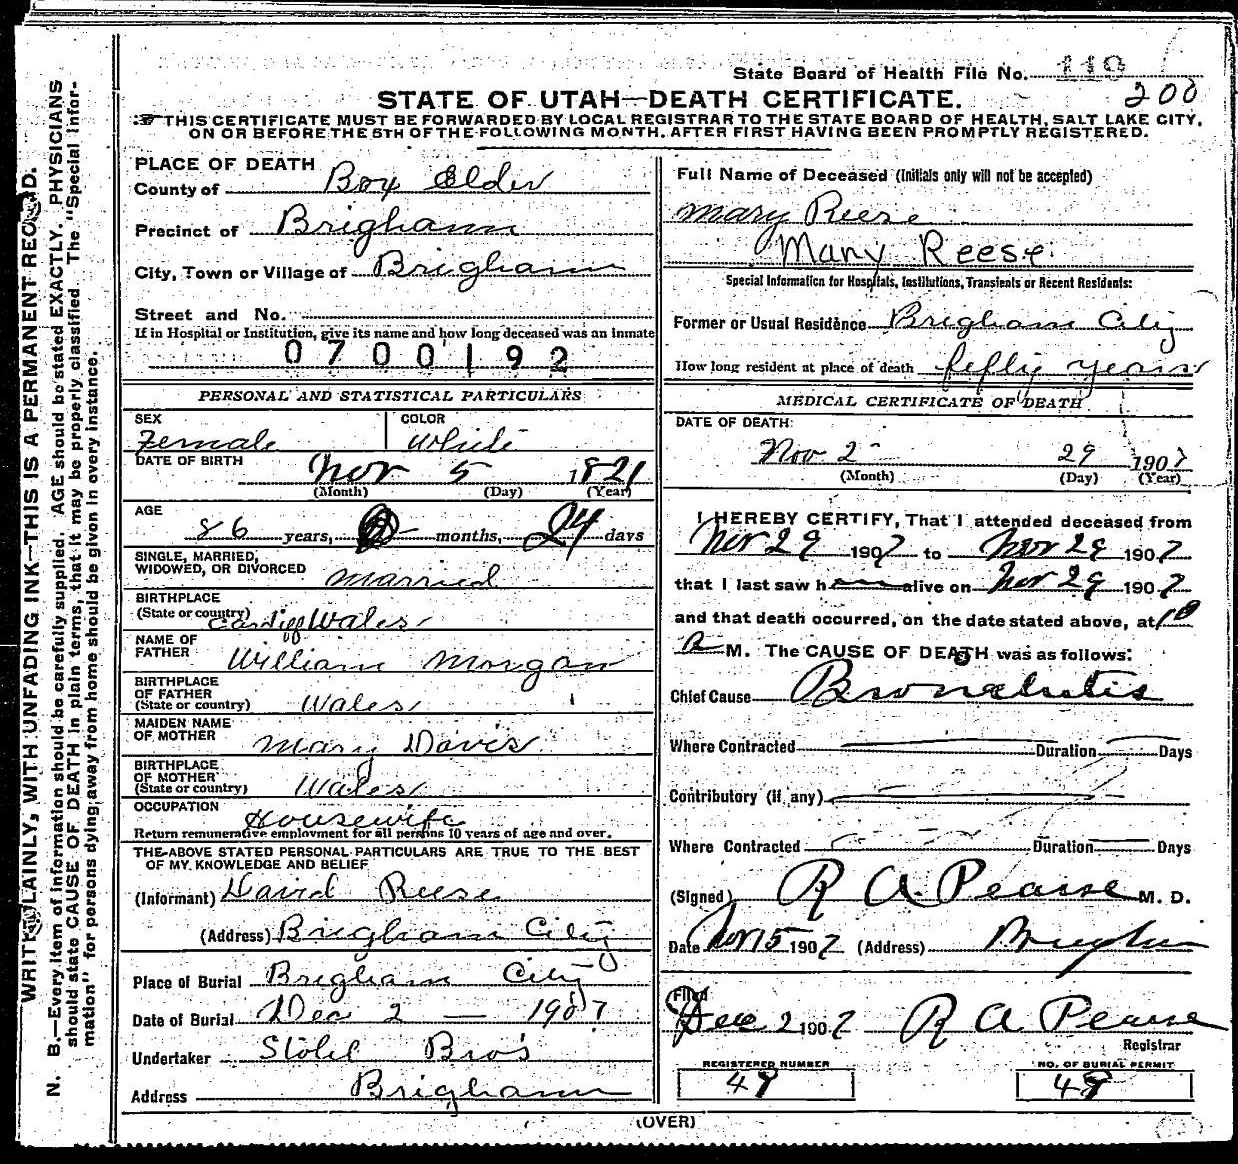 State Board of Health File No. 119
200
STATE OF UTAH—DEATH CERTIFICATE.
THIS CERTIFICATE MUST BE FORWARDED BY LOCAL REGISTRAR TO THE STATE BOARD OF HEALTH, SALT LAKE CITY,
ON OR BEFORE THE 5TH OF THE FOLLOWING MONTH. AFTER FIRST HAVING BEEN PROMPTLY REGISTERED.
WRITE PLAINLY, WITH UNFADING INK—THIS IS A PERMANENT RECORD.
N. B.—Every item of information should be carefully supplied. AGE should be stated EXACTLY. PHYSICIANS
should state CAUSE OF DEATH in plain terms, that it may be properly classified. The "Special Infor-
mation" for persons dying away from home should be given in every instance.
PLACE OF DEATH
County of Box Elder
Precinct of Brigham
City, Town or Village of Brigham
Street and No.
If in Hospital or Institution, give its name and how long deceased was an inmate
0700192
PERSONAL AND STATISTICAL PARTICULARS
SEX Female
COLOR White
DATE OF BIRTH Nov 5 1821
(Month) (Day) (Year)
AGE
86 years, months, 24 days
SINGLE, MARRIED,
WIDOWED, OR DIVORCED Married
BIRTHPLACE
(State or country) Cardiff Wales
NAME OF
FATHER William Morgan
BIRTHPLACE
OF FATHER
(State or country) Wales
MAIDEN NAME
OF MOTHER Mary Davis
BIRTHPLACE
OF MOTHER
(State or country) Wales
OCCUPATION Housewife
Return remunerative employment for all persons 10 years of age and over.
THE ABOVE STATED PERSONAL PARTICULARS ARE TRUE TO THE BEST
OF MY KNOWLEDGE AND BELIEF
(Informant) David Reese
(Address) Brigham City
Place of Burial Brigham City
Date of Burial Dec 2 — 1907
Undertaker Stohl Bros
Address Brigham
Full Name of Deceased (Initials only will not be accepted)
Mary Reese
Mary Reese
Special Information for Hospitals, Institutions, Transients or Recent Residents:
Former or Usual Residence Brigham City
How long resident at place of death fifty years
MEDICAL CERTIFICATE OF DEATH
DATE OF DEATH:
Nov 29 1907
(Month) (Day) (Year)
I HEREBY CERTIFY, That I attended deceased from
Nov 29 1907 to Nov 29 1907
that I last saw h alive on Nov 29 1907
and that death occurred, on the date stated above, at 10
M. The CAUSE OF DEATH was as follows:
Chief Cause Bronchitis
Where Contracted Duration Days
Contributory (if any)
Where Contracted Duration Days
(Signed) R A Pearse M. D.
Date 1907 (Address) Brigham
Filed
Dec 2 1907 R A Pearse
Registrar
REGISTERED NUMBER
49
NO. OF BURIAL PERMIT
49
(OVER)